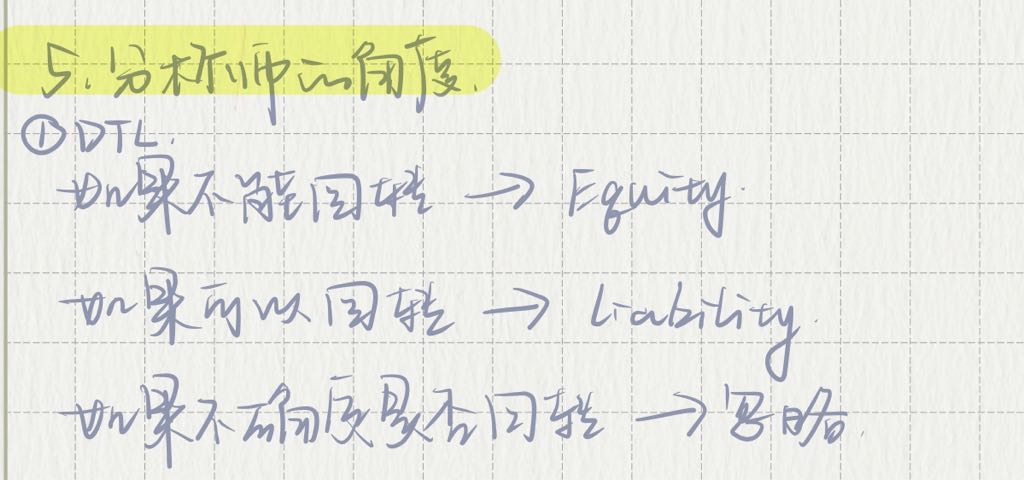 5.分析师的角度.
①DTL.
如果不能回转 → Equity.
如果可以回转 → Liability.
如果不确定是否回转 → 忽略.